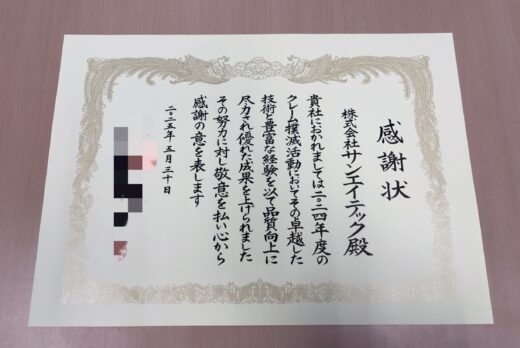 感謝状
株式会社サンエイテック殿
貴社におかれましては二〇二四年度の
クレーム撲滅活動においてその卓越した
技術と豊富な経験を以て品質向上に
尽力され優れた成果を上げられました
その努力に対し敬意を払い心から
感謝の意を表します
二〇二五年五月三十日